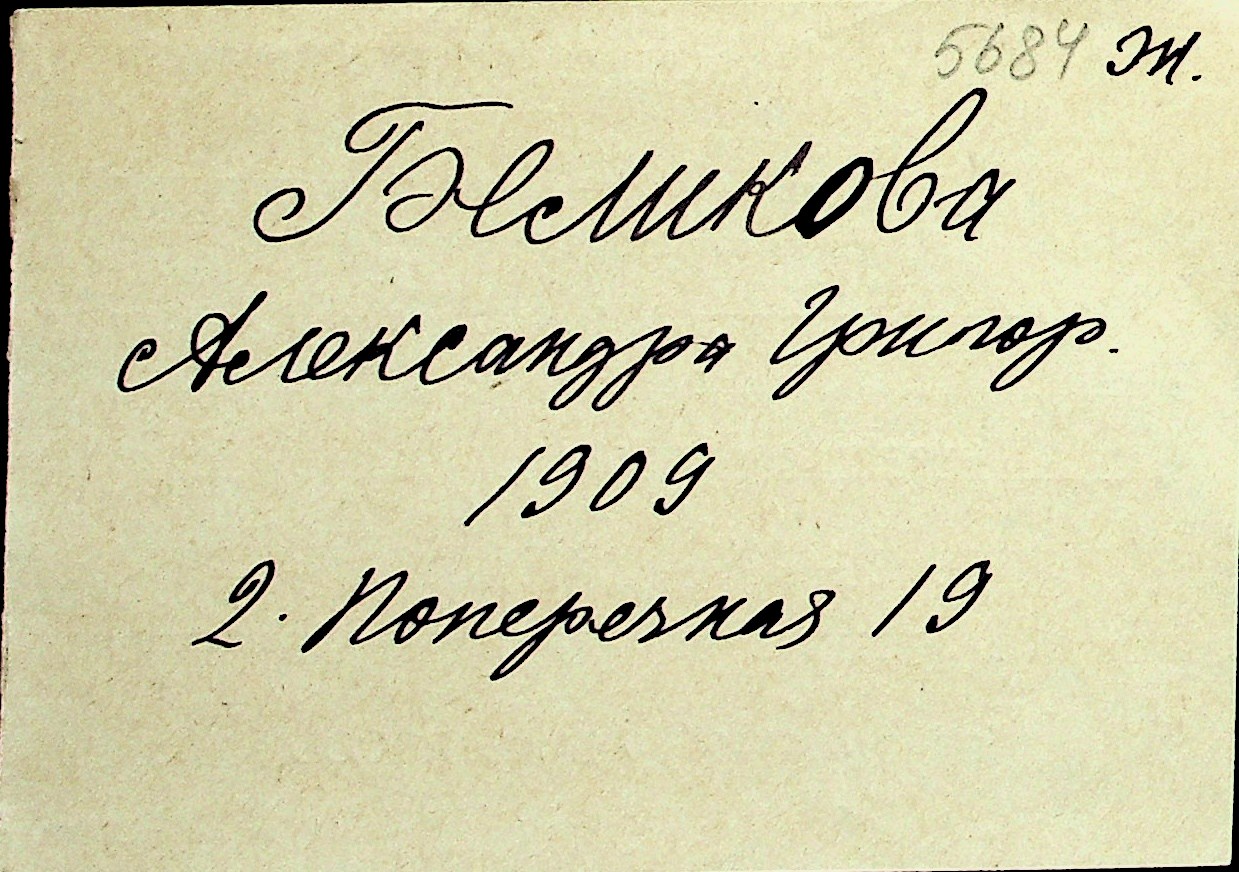 5684 Ж.
Александра Григор.
1909
2. Поперечная 19